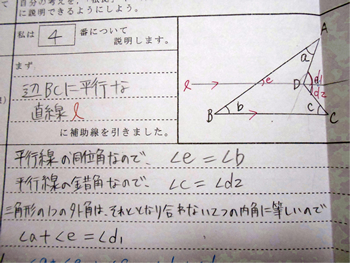 自分の考えを、
に説明できるようにしよう。
私は 4 番について
説明します。
まず
辺BCに平行な
直線ℓ
に補助線を引きました。
A
a
ℓ
e
D
d1
d2
B
b
c
C
平行線の同位角なので、∠e=∠b
平行線の錯角なので、∠c=∠d2
三角形の1つの外角は、それととなり合わない2つの内角に等しいので
∠a+∠e=∠d1